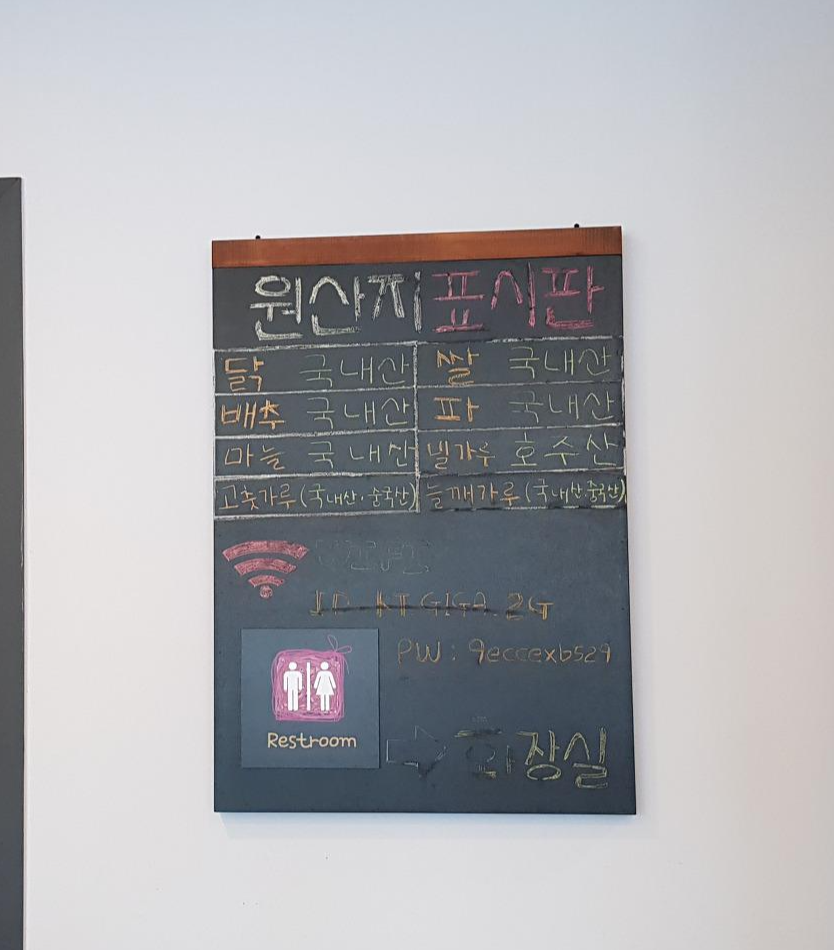 원산지 표시판
닭 국내산 쌀 국내산
배추 국내산 파 국내산
마늘 국내산 밀가루 호주산
고춧가루 (국내산·중국산) 들깨가루 (국내산·중국산)
ID KT GIGA 2G
PW : 9eccexb529
Restroom
화장실